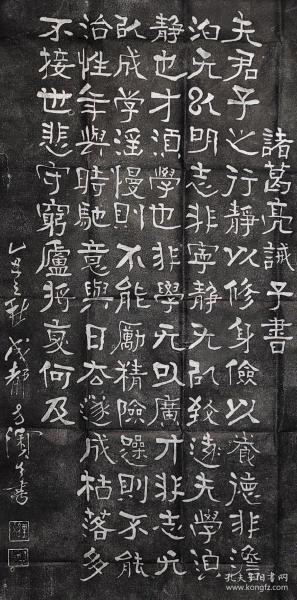 諸葛亮誡子書
夫君子之行静以修身儉以養德非澹
泊无以明志非寧静无以致遠夫学須
静也才須學也非學无以廣才非志无
以成学淫慢則不能勵精險躁則不能
治性年與時馳意與日去遂成枯落多
不接世悲守窮廬將复何及
乙丑之秋成都書
孔夫子旧书网
www.kongfz.com